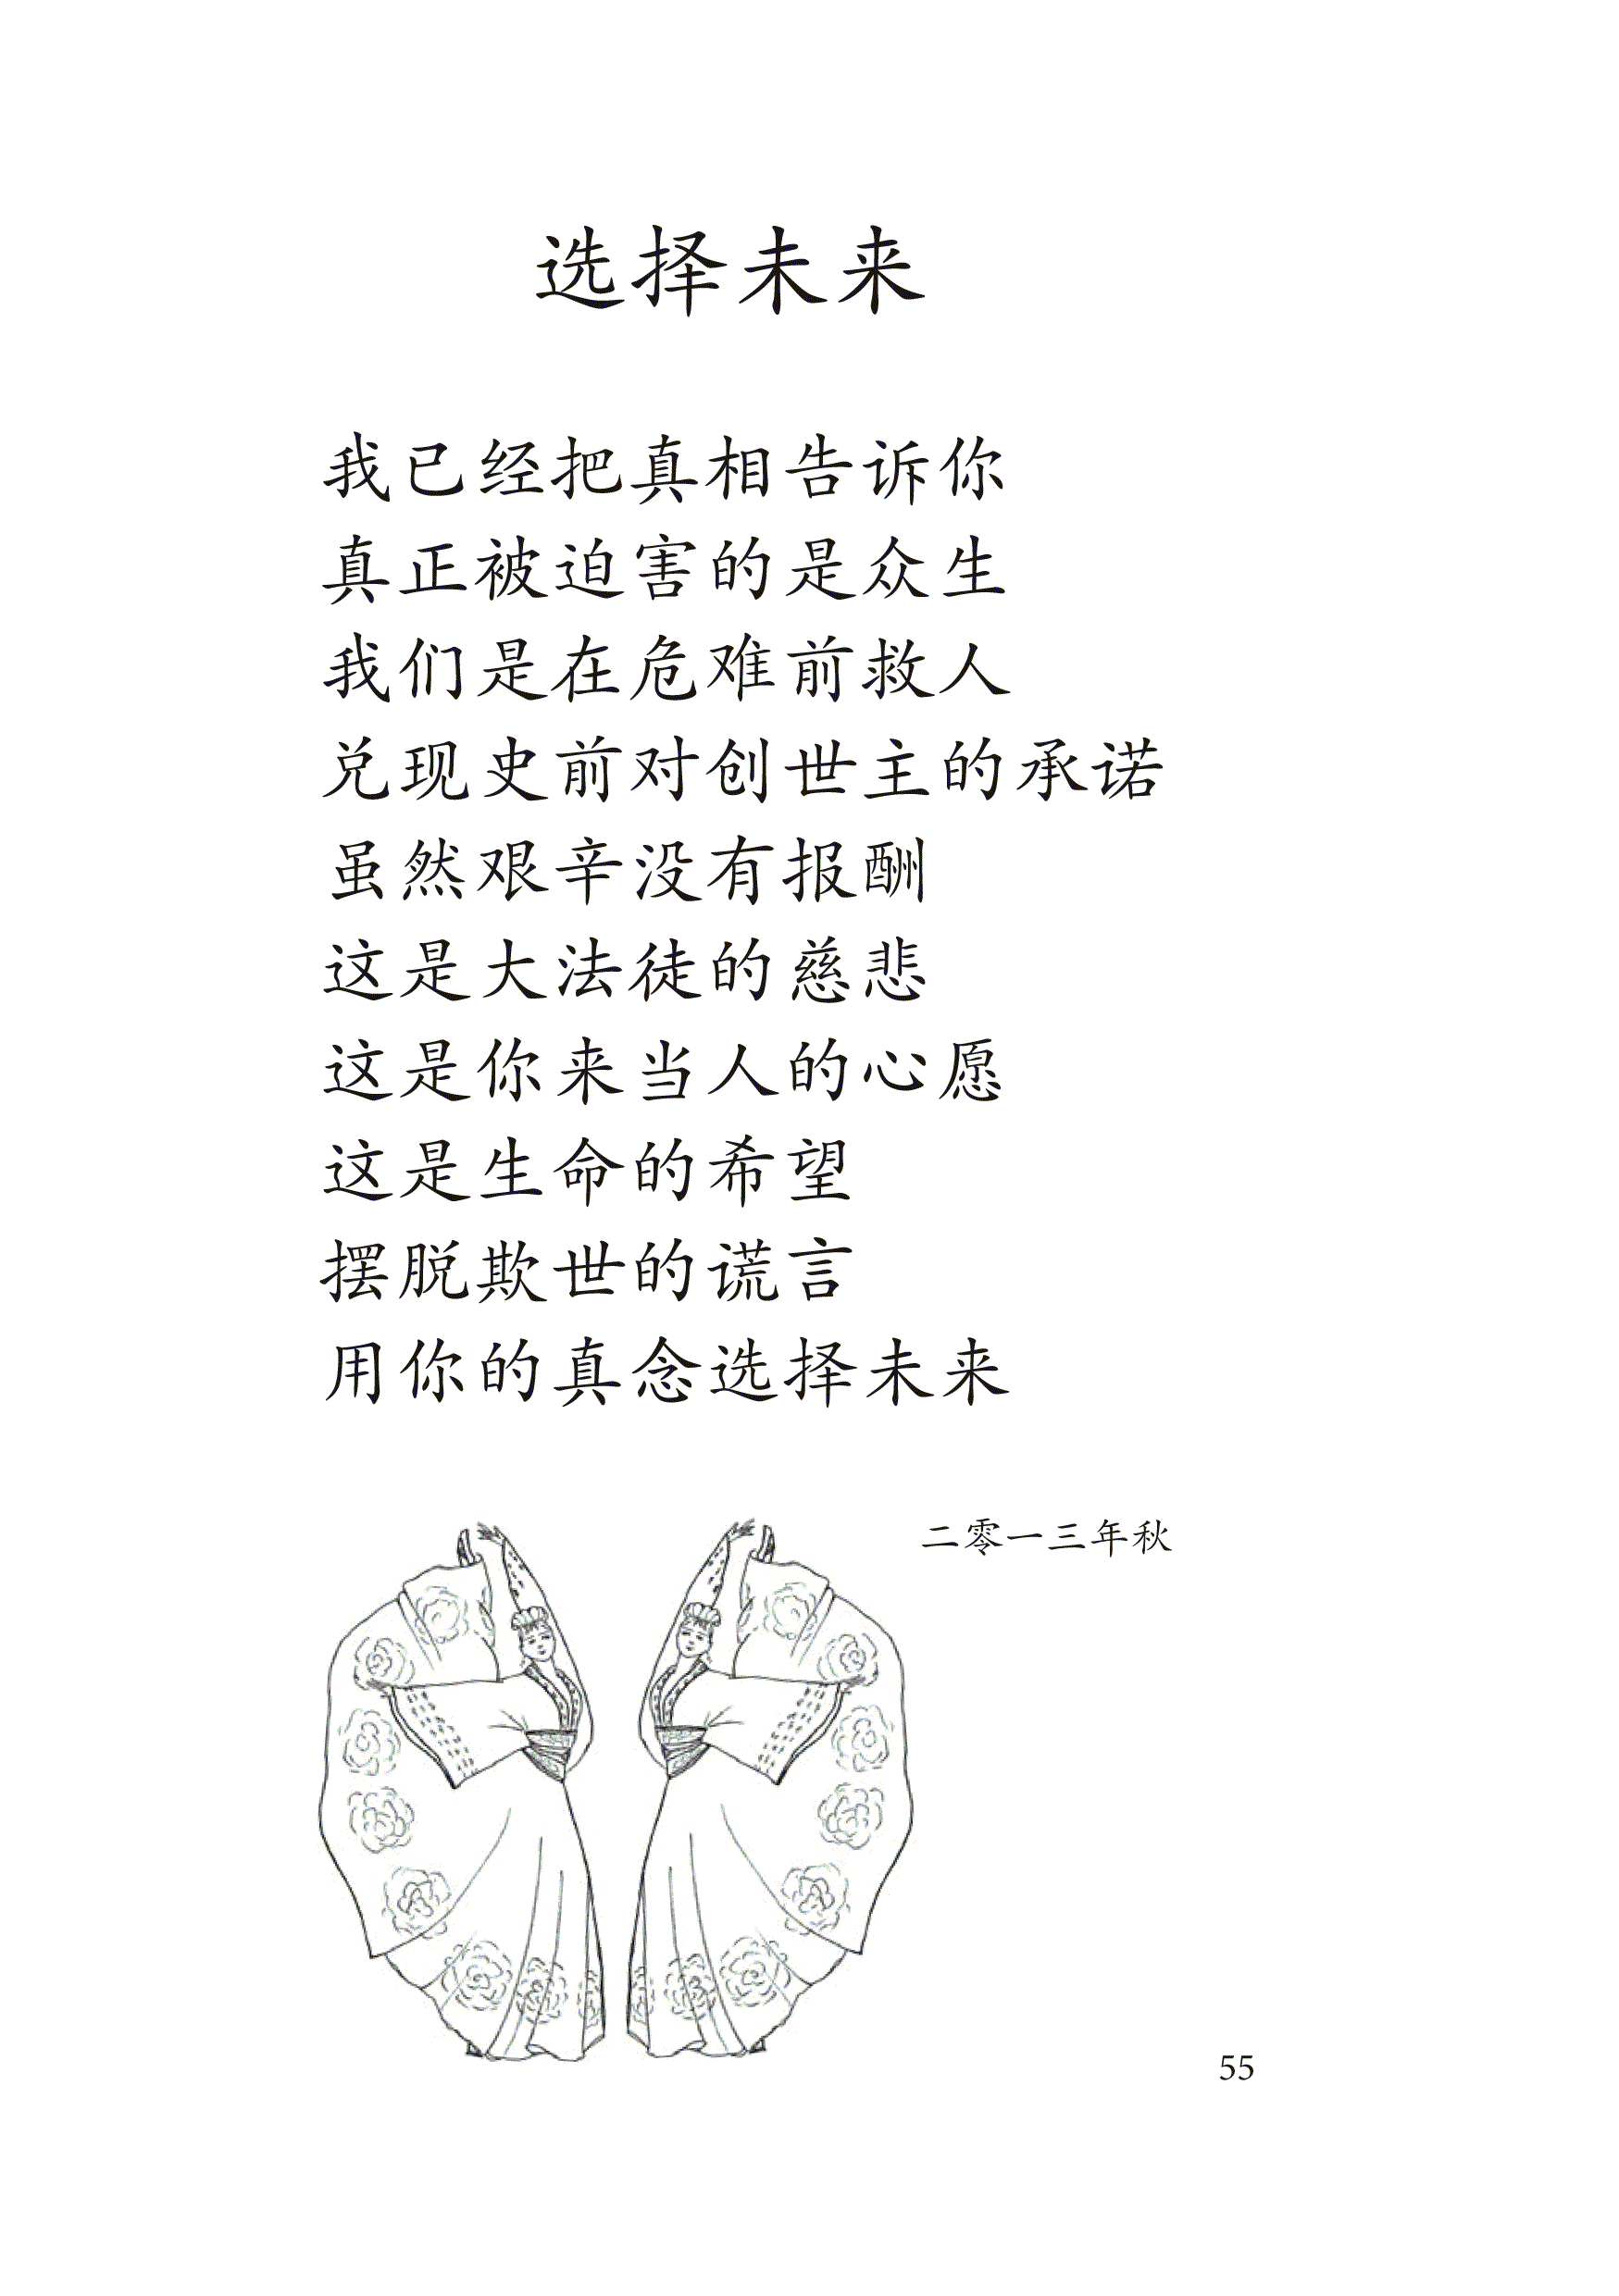 选择未来
我已经把真相告诉你
真正被迫害的是众生
我们是在危难前救人
兑现史前对创世主的承诺
虽然艰辛没有报酬
这是大法徒的慈悲
这是你来当人的心愿
这是生命的希望
摆脱欺世的谎言
用你的真念选择未来
二零一三年秋
55